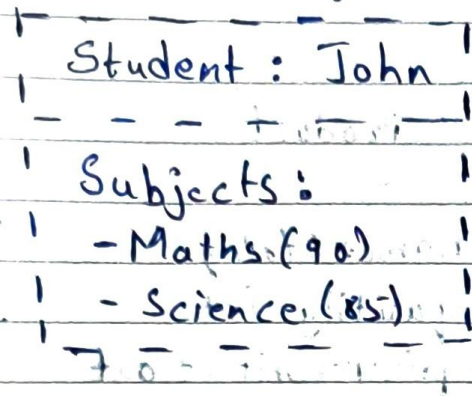 Student : John
Subjects :
- Maths (90)
- Science (85)